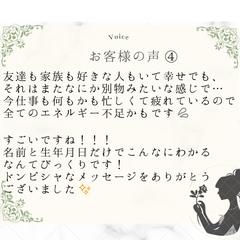 Voice
お客様の声 ④
友達も家族も好きな人もいて幸せでも、
それはまたなにか別物みたいな感じで…
今仕事も何もかも忙しくて疲れているので
全てのエネルギー不足かもです💦
すごいですね！！！
名前と生年月日だけでこんなにわかる
なんてびっくりです！
ドンピシャなメッセージをありがとう
ございました✨